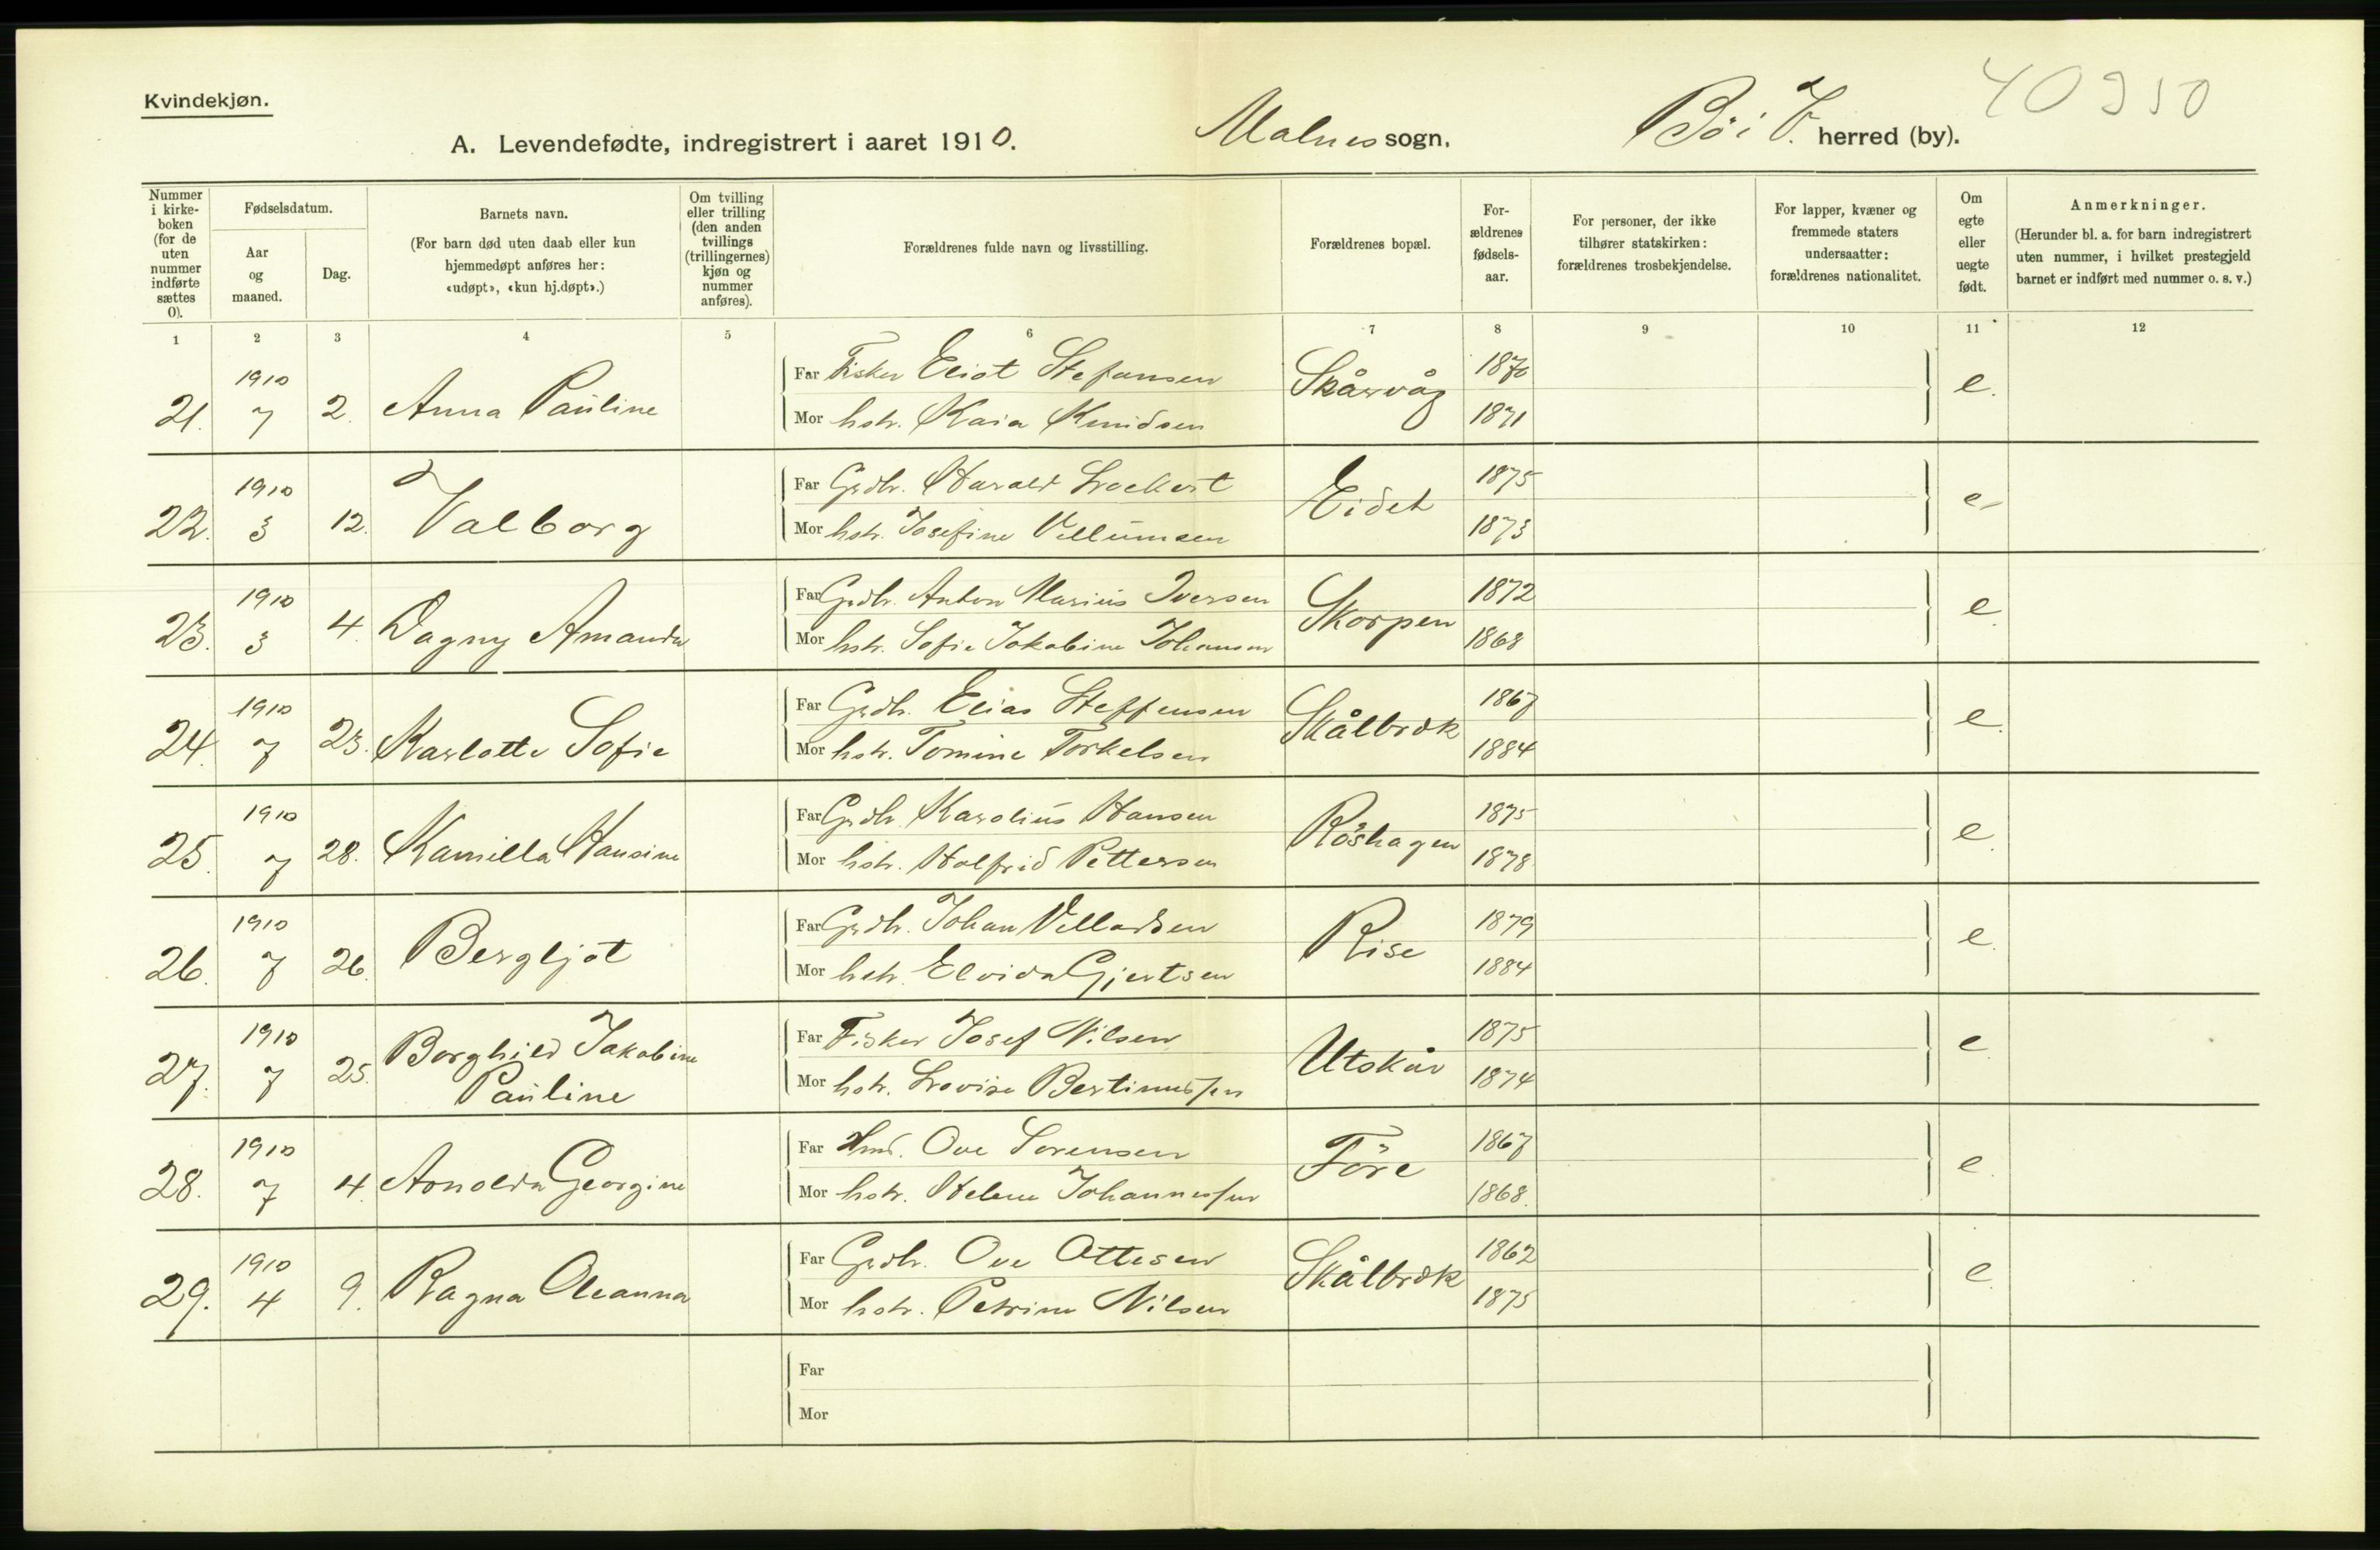 Kvindekjøn.
40950
A. Levendefødte, indregistrert i aaret 1910. Malnes sogn. Bö i V. herred (by).
Nummer i kirke- boken (for de uten nummer indførte sættes 0).
Fødselsdatum.
Aar og maaned.
Dag.
Barnets navn.
(For barn død uten daab eller kun hjemmedøpt anføres her: «udøpt», «kun hj.døpt».)
Om tvilling eller trilling (den anden tvillings (trillingernes) kjøn og nummer anføres).
Forældrenes fulde navn og livsstilling.
Forældrenes bopæl.
For- ældrenes fødsels- aar.
For personer, der ikke tilhører statskirken: forældrenes trosbekjendelse.
For lapper, kvæner og fremmede staters undersaatter: forældrenes nationalitet.
Om egte eller uegte født.
Anmerkninger.
(Herunder bl. a. for barn indregistrert uten nummer, i hvilket prestegjeld barnet er indført med nummer o. s. v.)
1 2 3 4 5 6 7 8 9 10 11 12
21. 1910 7 2. Anna Pauline Far Fisker Eliot Stefansen Skårvåg 1870 e.
Mor hstr. Kaia Knudsen 1871
22. 1910 3 12. Valborg Far Grdbr. Harald Lockert Eidet 1875 e.
Mor hstr. Josefine Villumsen 1873
23. 1910 3 4. Dagny Amanda Far Grdbr. Anton Marius Iversen Skorpen 1872 e.
Mor hstr. Sofie Jakobine Johansen 1868
24. 1910 7 23. Karlotte Sofie Far Grdb. Elias Steffensen Skålbrek 1867 e.
Mor hstr. Tomine Torkelsen 1884
25. 1910 7 28. Kamilla Hansine Far Grdb. Karolius Hansen Röshagen 1875 e.
Mor hstr. Halfrid Pettersen 1878
26. 1910 7 26. Bergljot Far Grdb. Johan Villadsen Rise 1879 e.
Mor hstr. Elvida Gjertsen 1884
27. 1910 7 25. Borghild Jakobine Pauline Far Fisker Josef Nilsen Utskår 1875 e.
Mor hstr. Lovise Bertinussen 1874
28. 1910 7 4. Arnolda Georgine Far Hmd. Ove Sorensen Före 1867 e.
Mor hstr. Helene Johannessen 1868.
29. 1910 4 9. Ragna Oleanna Far Grdb. Ove Ottesen Skålbrek 1862 e.
Mor hstr. Petrine Nilsen 1875
Far
Mor